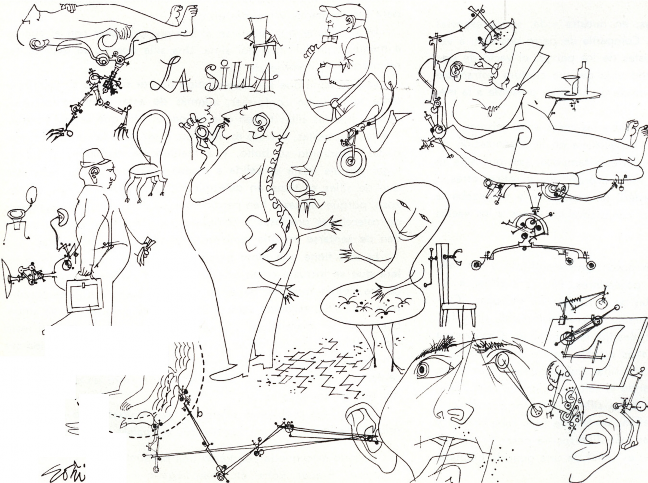 LA SILLA
b
Goñi